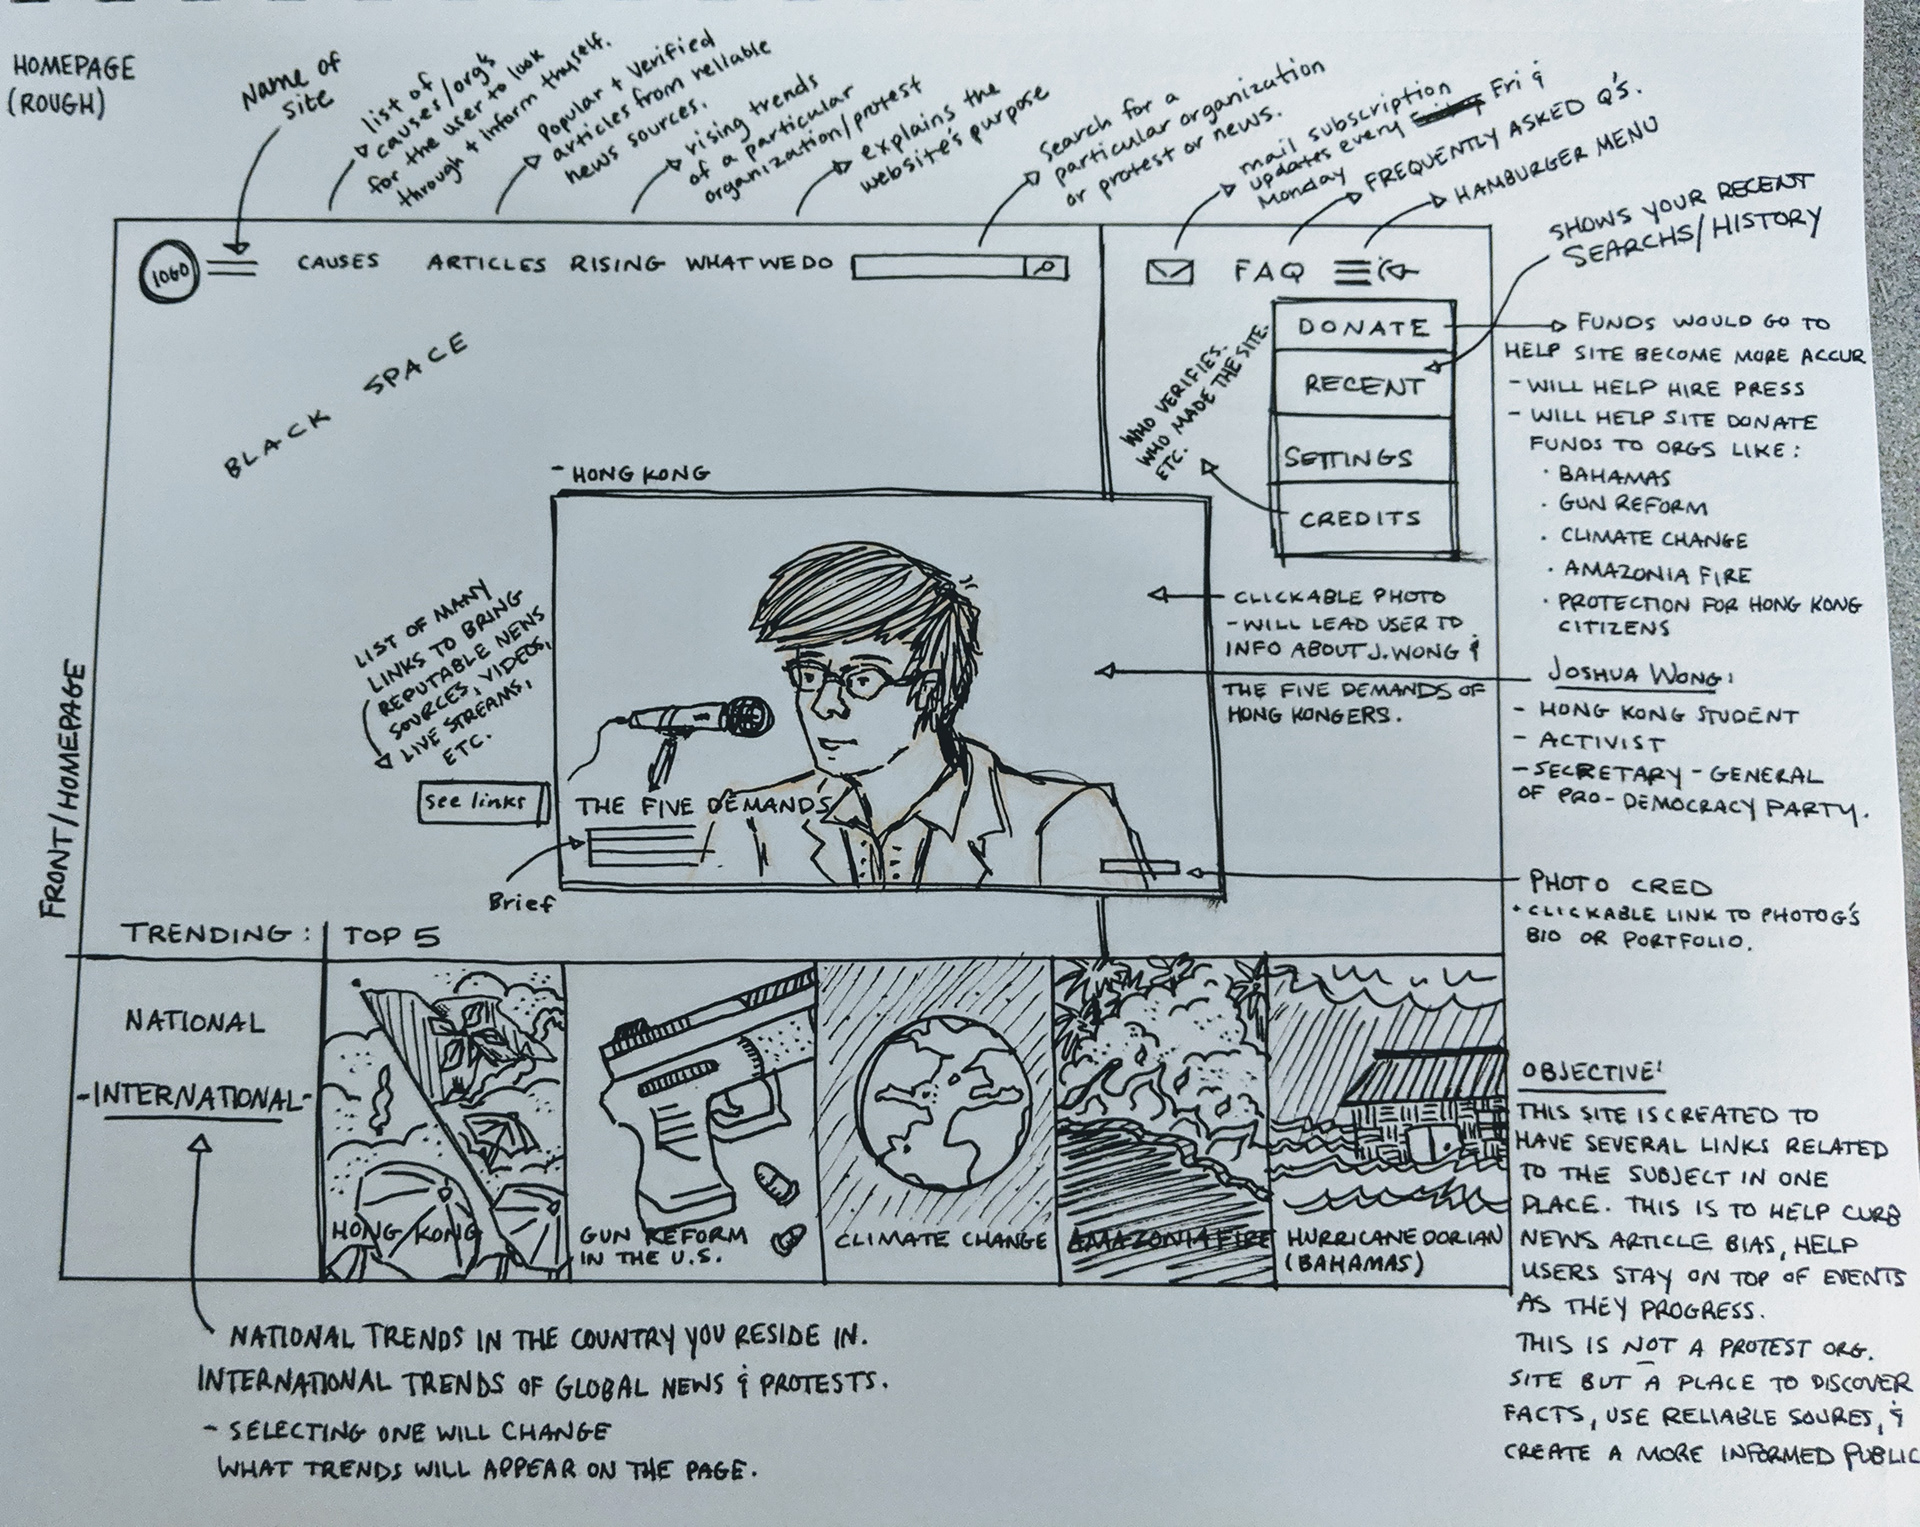 HOMEPAGE
(ROUGH)
Name of
site
list of
causes/org's
for the user to look
through + inform thyself.
Popular + Verified
articles from reliable
news sources.
rising trends
of a particular
organization/protest
explains the
website's purpose
Search for a
particular organization
or protest or news.
mail subscription
updates every Fri &
Monday
FREQUENTLY ASKED Q'S.
HAMBURGER MENU
SHOWS YOUR RECENT
SEARCHS/HISTORY
LOGO
CAUSES ARTICLES RISING WHAT WE DO
FAQ
DONATE
RECENT
SETTINGS
CREDITS
WHO VERIFIES.
WHO MADE THE SITE.
ETC.
FUNDS WOULD GO TO
HELP SITE BECOME MORE ACCUR
- WILL HELP HIRE PRESS
- WILL HELP SITE DONATE
FUNDS TO ORGS LIKE:
· BAHAMAS
· GUN REFORM
· CLIMATE CHANGE
· AMAZONIA FIRE
· PROTECTION FOR HONG KONG
CITIZENS
BLACK SPACE
- HONG KONG
LIST OF MANY
LINKS TO BRING
REPUTABLE NEWS
SOURCES, VIDEOS,
LIVE STREAMS,
ETC.
see links
THE FIVE DEMANDS
Brief
CLICKABLE PHOTO
- WILL LEAD USER TO
INFO ABOUT J. WONG &
THE FIVE DEMANDS OF
HONG KONGERS.
JOSHUA WONG:
- HONG KONG STUDENT
- ACTIVIST
- SECRETARY-GENERAL
OF PRO-DEMOCRACY PARTY.
PHOTO CRED
· CLICKABLE LINK TO PHOTOG'S
BIO OR PORTFOLIO.
FRONT/HOMEPAGE
TRENDING: TOP 5
NATIONAL
-INTERNATIONAL-
HONG KONG
GUN REFORM
IN THE U.S.
CLIMATE CHANGE
AMAZONIA FIRE
HURRICANE DORIAN
(BAHAMAS)
OBJECTIVE:
THIS SITE IS CREATED TO
HAVE SEVERAL LINKS RELATED
TO THE SUBJECT IN ONE
PLACE. THIS IS TO HELP CURB
NEWS ARTICLE BIAS, HELP
USERS STAY ON TOP OF EVENTS
AS THEY PROGRESS.
THIS IS NOT A PROTEST ORG.
SITE BUT A PLACE TO DISCOVER
FACTS, USE RELIABLE SOURES, &
CREATE A MORE INFORMED PUBLIC
NATIONAL TRENDS IN THE COUNTRY YOU RESIDE IN.
INTERNATIONAL TRENDS OF GLOBAL NEWS & PROTESTS.
- SELECTING ONE WILL CHANGE
WHAT TRENDS WILL APPEAR ON THE PAGE.